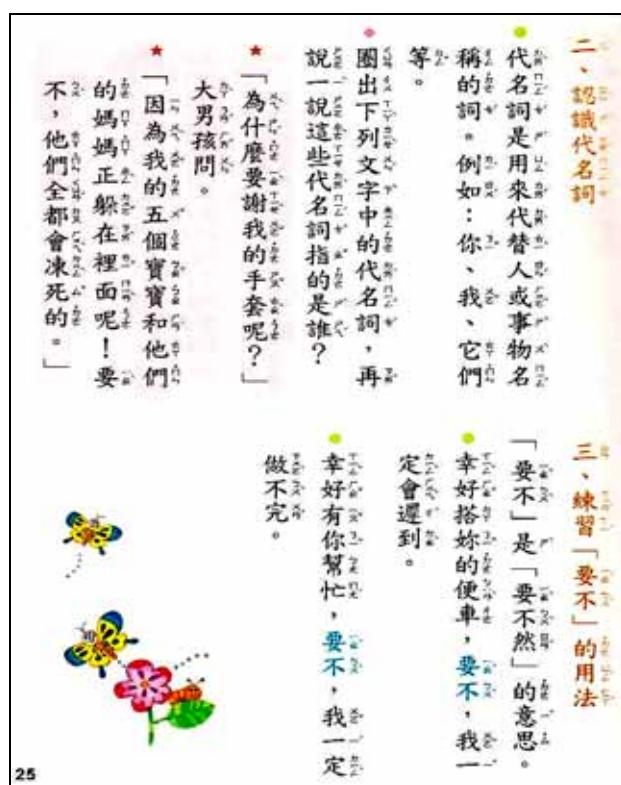 二、認識代名詞
代名詞是用來代替人或事物名
稱的詞。例如：你、我、它們
等。
圈出下列文字中的代名詞，再
說一說這些代名詞指的是誰？
「為什麼要謝我的手套呢？」
大男孩問。
「因為我的五個寶寶和他們
的媽媽正躲在裡面呢！要
不，他們全都會凍死的。」
三、練習「要不」的用法
「要不」是「要不然」的意思。
幸好搭妳的便車，要不，我一
定會遲到。
幸好有你幫忙，要不，我一定
做不完。
25